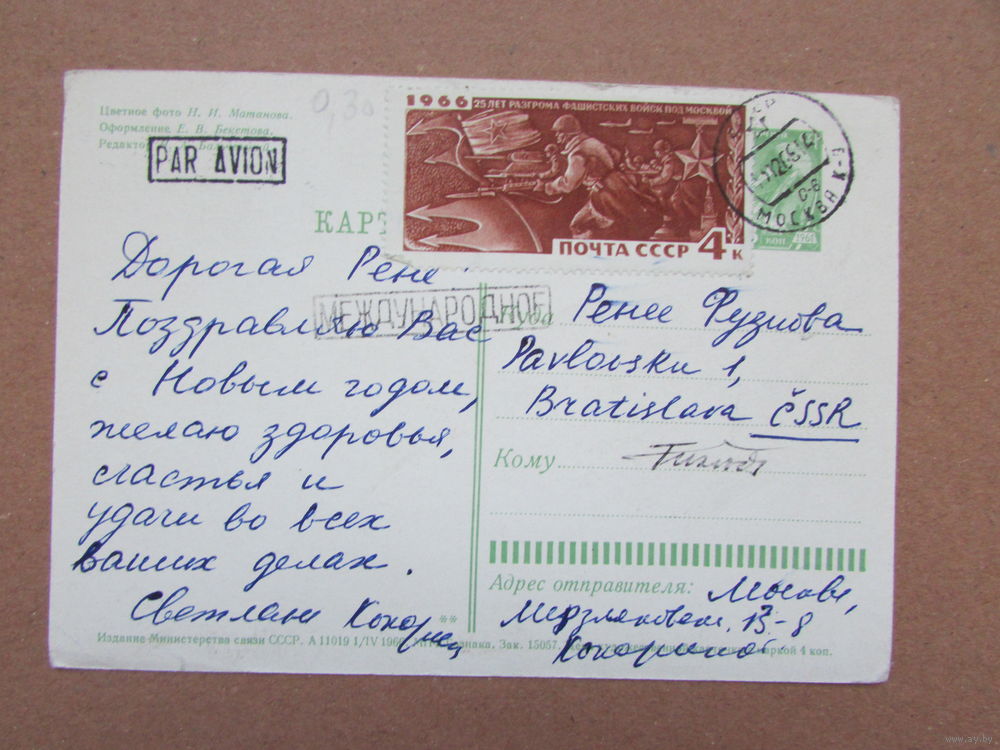 Цветное фото Н. И. Матанова.
Оформление Е. В. Бекетова.
Редактор
0,30
PAR AVION
1966 25 ЛЕТ РАЗГРОМА ФАШИСТСКИХ ВОЙСК ПОД МОСКВОЙ
ПОЧТА СССР 4 К
МОСКВА К-9
С-6
КОП 1961
КАР
Дорогая Рене
МЕЖДУНАРОДНОЕ
Поздравляю Вас
с Новым годом,
желаю здоровья,
счастья и
удачи во всех
ваших делах.
Светлана
Куда Ренее Фузкова
Pavlovsku 1,
Bratislava ČSSR
Кому
Адрес отправителя: Москва,
13-8
**
Издание Министерства связи СССР. А 11019 1/IV 1966 Зак. 15057. маркой 4 коп.
www.ay.by